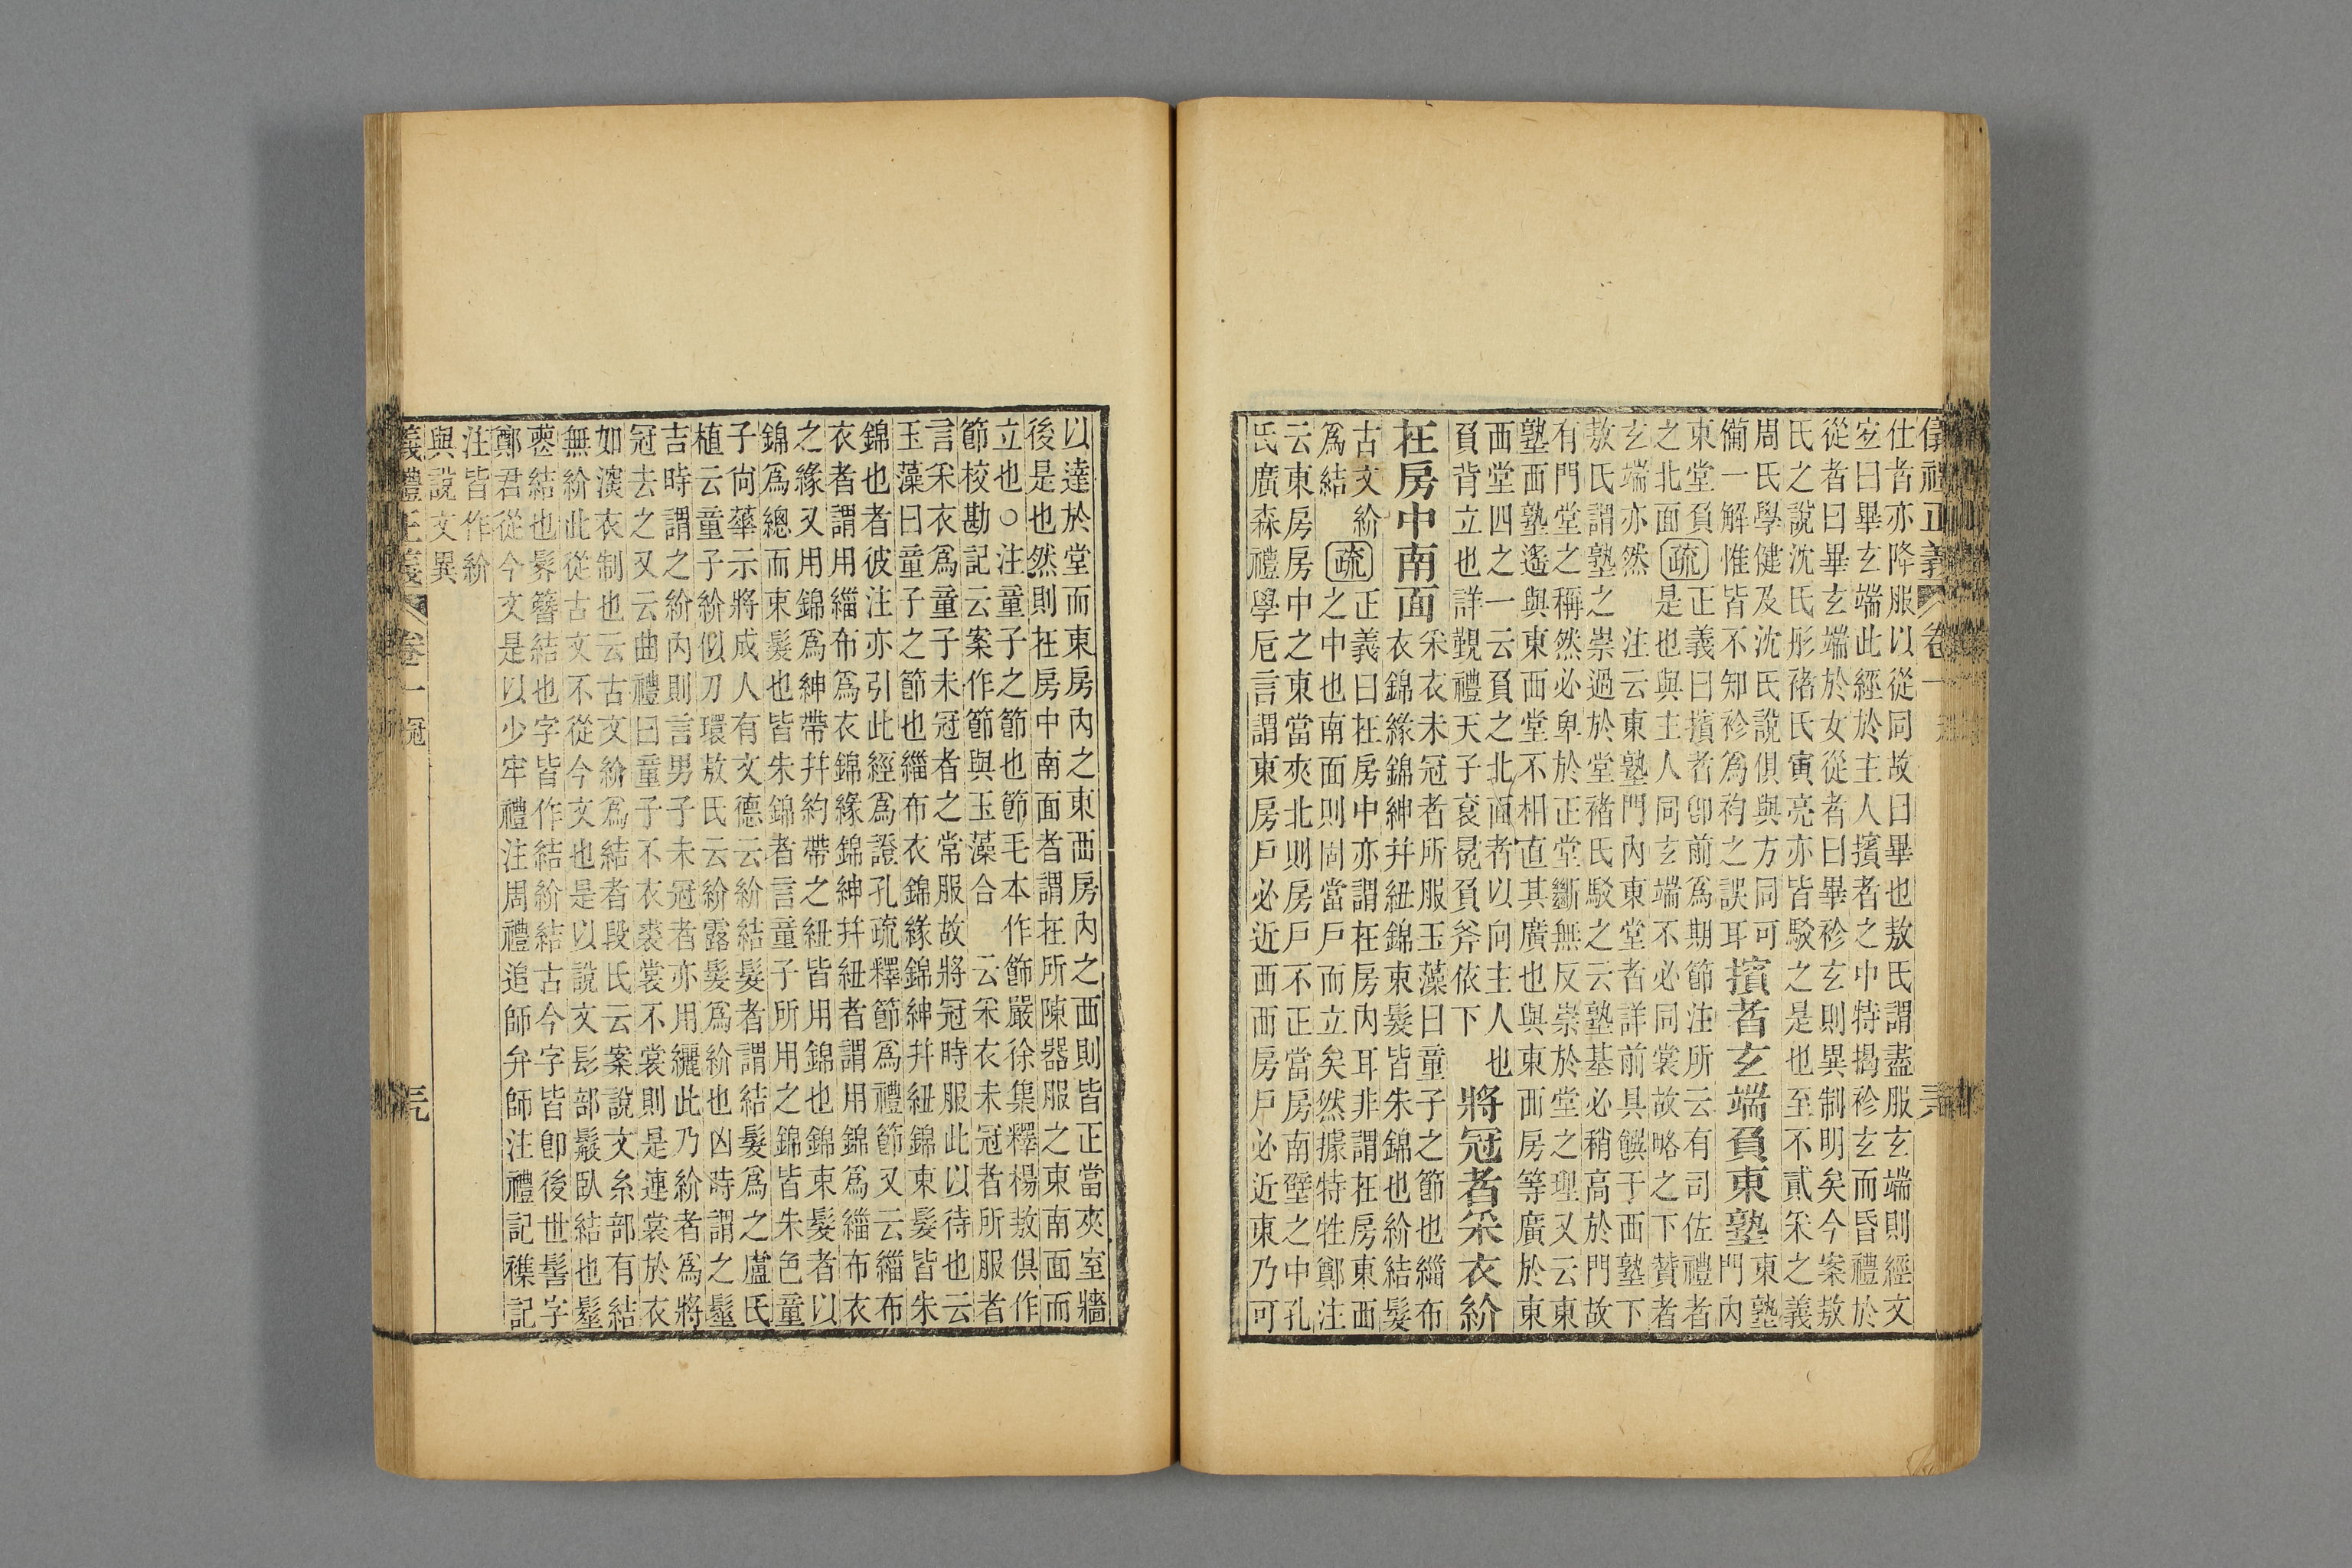 儀禮正義 卷一
仕者亦降服以從同故曰畢也敖氏謂盡服玄端則經文
宜曰畢玄端此經於主人擯者之中特揭袗玄而昏禮於
從者曰畢玄端於女從者曰畢袗玄則異制明矣今案敖
氏之說沈氏彤褚氏寅亮亦皆駁之是也至不貳采之義
周氏學健及沈氏說俱與方同可
備一解惟皆不知袗爲袀之誤耳
擯者玄端負東塾
東塾
門內
東堂負
之北面
疏
正義曰擯者卽前爲期節注所云有司佐禮者
是也與主人同玄端不必同裳故略之下贊者
玄端亦然 注云東塾門內東堂者詳前具饌于西塾下
敖氏謂塾之崇過於堂褚氏駁之云塾基必稍高於門故
有門堂之稱然必卑於正堂斷無反崇於堂之理又云東
塾西塾遙與東西堂不相直其廣也與東西房等廣於東
西堂四之一云負之北面者以向主人也
負背立也詳覲禮天子袞冕負斧依下
將冠者采衣紒
在房中南面
采衣未冠者所服玉藻曰童子之節也緇布
衣錦緣錦紳幷紐錦束髮皆朱錦也紒結髮
古文紒
爲結
疏
正義曰在房中亦謂在房內耳非謂在房東西
之中也南面則固當戶而立矣然據特牲鄭注
云東房房中之東當夾北則房戶不正當房南壁之中孔
氏廣森禮學卮言謂東房戶必近西西房戶必近東乃可
以達於堂而東房內之東西房內之西則皆正當夾室牆
後是也然則在房中南面者謂在所陳器服之東南面而
立也○注童子之節也節毛本作飾嚴徐集釋楊敖俱作
節校勘記云案作節與玉藻合 云采衣未冠者所服者
言采衣爲童子未冠者之常服故將冠時服此以待也云
玉藻曰童子之節也緇布衣錦緣錦紳幷紐錦束髮皆朱
錦也者彼注亦引此經爲證孔疏釋節爲禮節又云緇布
衣者謂用緇布爲衣錦緣錦紳幷紐者謂用錦爲緇布衣
之緣又用錦爲紳帶幷約帶之紐皆用錦也錦束髮者以
錦爲總而束髮也皆朱錦者言童子所用之錦皆朱色童
子尙華示將成人有文德云紒結髮者謂結髮爲之盧氏
植云童子紒似刀環敖氏云紒露髮爲紒也凶時謂之髽
吉時謂之紒內則言男子未冠者亦用纚此乃紒者爲將
冠去之又云曲禮曰童子不衣裘裳不裳則是連裳於衣
如深衣制也云古文紒爲結者段氏云案說文糸部有結
無紒此從古文不從今文也是以說文髟部鬏臥結也髽
喪結也髺簪結也字皆作結紒結古今字皆卽後世髻字
鄭君從今文是以少牢禮注周禮追師弁師注禮記襍記
注皆作紒
與說文異
儀禮正義 卷一 冠